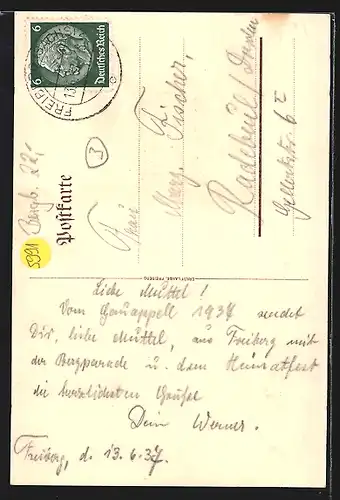 6 Deutsches Reich 6
FREIBERG
13
5991
Bergb. 22,-
3
Postkarte
Frau
Marg. Fischer,
Radebeul / Dresden
Gellertstr. 6
Liebe Muttel!
Vom Gauappell 1937 sendet
Dir, liebe Muttel, aus Freiberg mit
der Bergparade u. dem Heimatfest
die herzlichsten Grüße
Dein Werner.
Freiberg, d. 13.6.37.